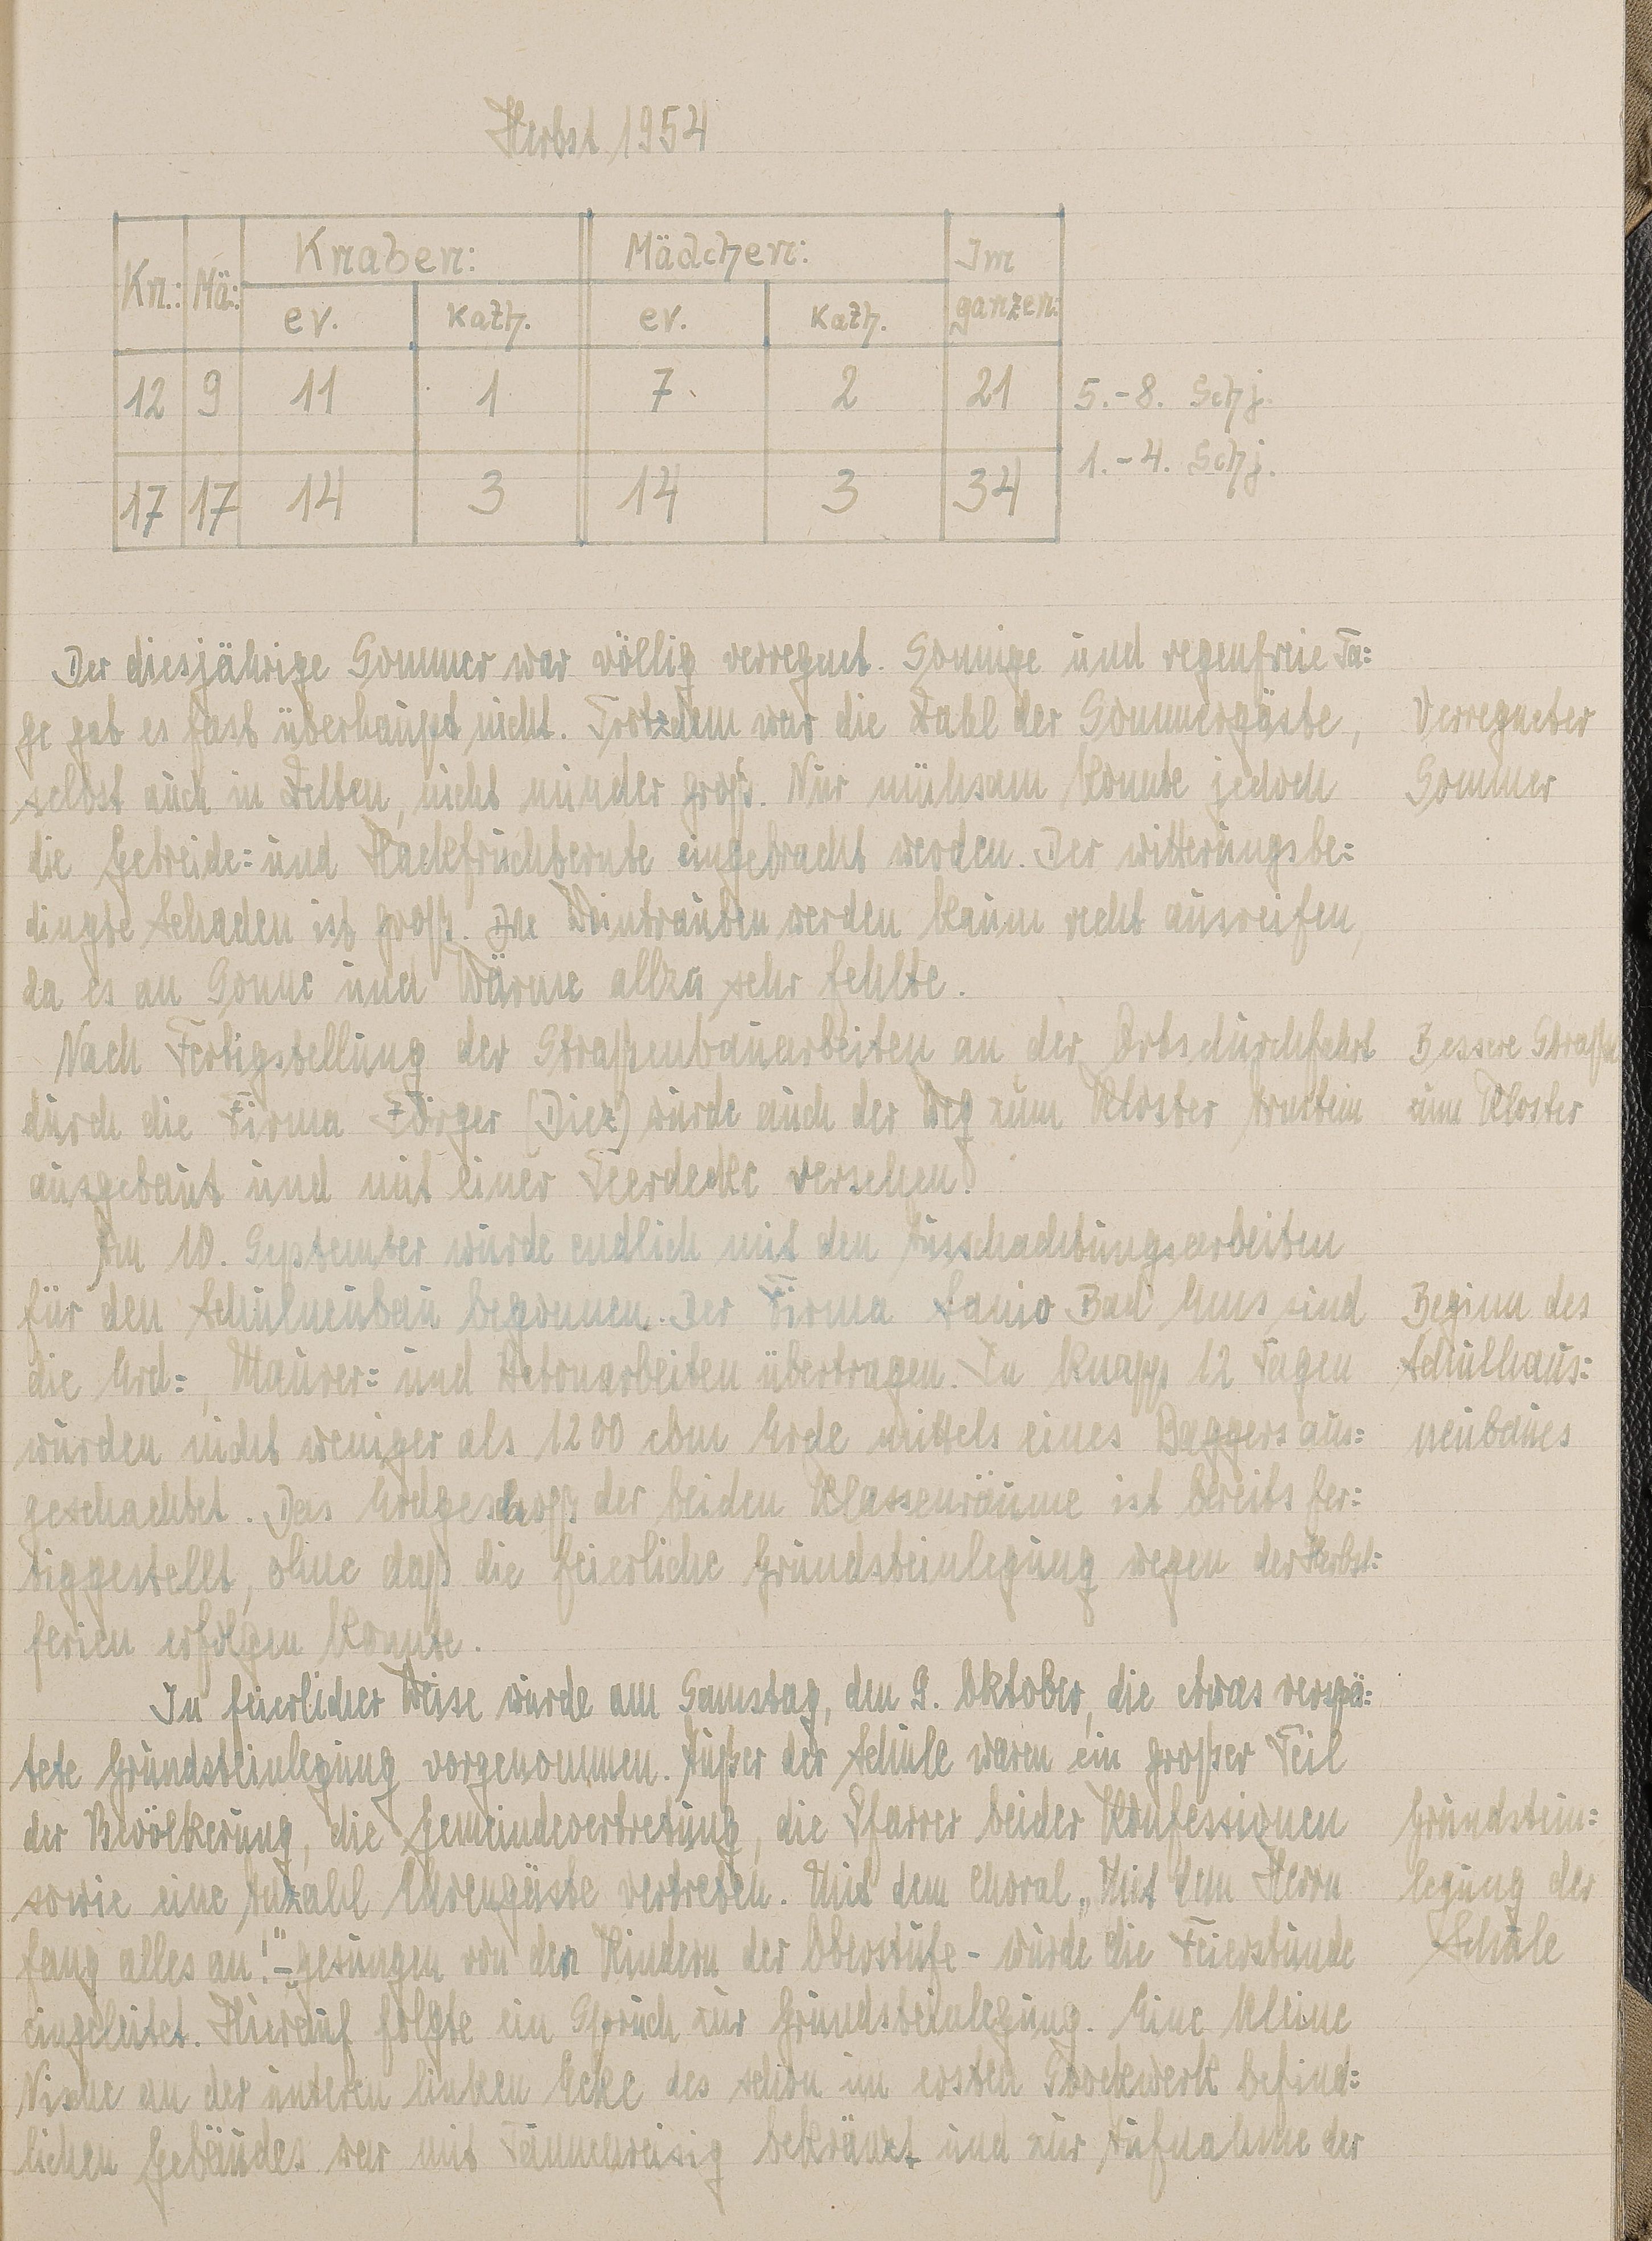 Herbst 1954
Kn.: Mä: Knaben: Mädchen: Im ganzen:
ev. kath. ev. kath.
12 9 11 1 7 2 21 5.-8. Schj.
17 17 14 3 14 3 34 1.-4. Schj.
Der diesjährige Sommer war völlig verregnet. Sonnige und regenfreie Ta:
ge gab es fast überhaupt nicht. Trotzdem war die Zahl der Sommergäste,
Verregneter
selbst auch in Zelten, nicht minder groß. Nur mühsam konnte jedoch
Sommer
die Getreide= und Hackfruchternte eingebracht werden. Der witterungsbe:
dingte Schaden ist groß. Die Weintrauben werden kaum recht ausreifen,
da es an Sonne und Wärme allzu sehr fehlte.
Nach Fertigstellung der Straßenbauarbeiten an der Ortsdurchfahrt
Bessere Straße
durch die Firma Zörger (Diez) wurde auch der Weg zum Kloster Arnstein
zum Kloster
ausgebaut und mit einer Teerdecke versehen.
Am 10. September wurde endlich mit den Ausschachtungsarbeiten
für den Schulneubau begonnen. Der Firma Lanio Bad Ems sind
Beginn des
die Erd=, Maurer= und Betonarbeiten übertragen. In knapp 12 Tagen
Schulhaus:
wurden nicht weniger als 1200 cbm Erde mittels eines Baggers aus:
neubaues
geschachtet. Das Erdgeschoß der beiden Klassenräume ist bereits fer:
tiggestellt, ohne daß die feierliche Grundsteinlegung wegen der Herbst:
ferien erfolgen konnte.
In feierlicher Weise wurde am Samstag, den 9. Oktober, die etwas verspä:
tete Grundsteinlegung vorgenommen. Außer der Schule waren ein großer Teil
der Bevölkerung, die Gemeindevertretung, die Pfarrer beider Konfessionen
Grundstein:
sowie eine Anzahl Ehrengäste vertreten. Mit dem Choral „Mit dem Herrn
legung der
fang alles an!" - gesungen von den Kindern der Oberstufe - wurde die Feierstunde
Schule
eingeleitet. Hierauf folgte ein Spruch zur Grundsteinlegung. Eine kleine
Nische an der unteren linken Ecke des schon im ersten Stockwerk befind:
lichen Gebäudes war mit Tannenreisig bekränzt und zur Aufnahme der